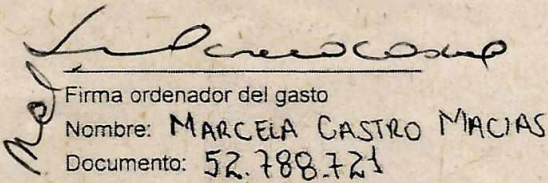 Firma ordenador del gasto
Nombre: MARCELA CASTRO MACIAS
Documento: 52.788.721